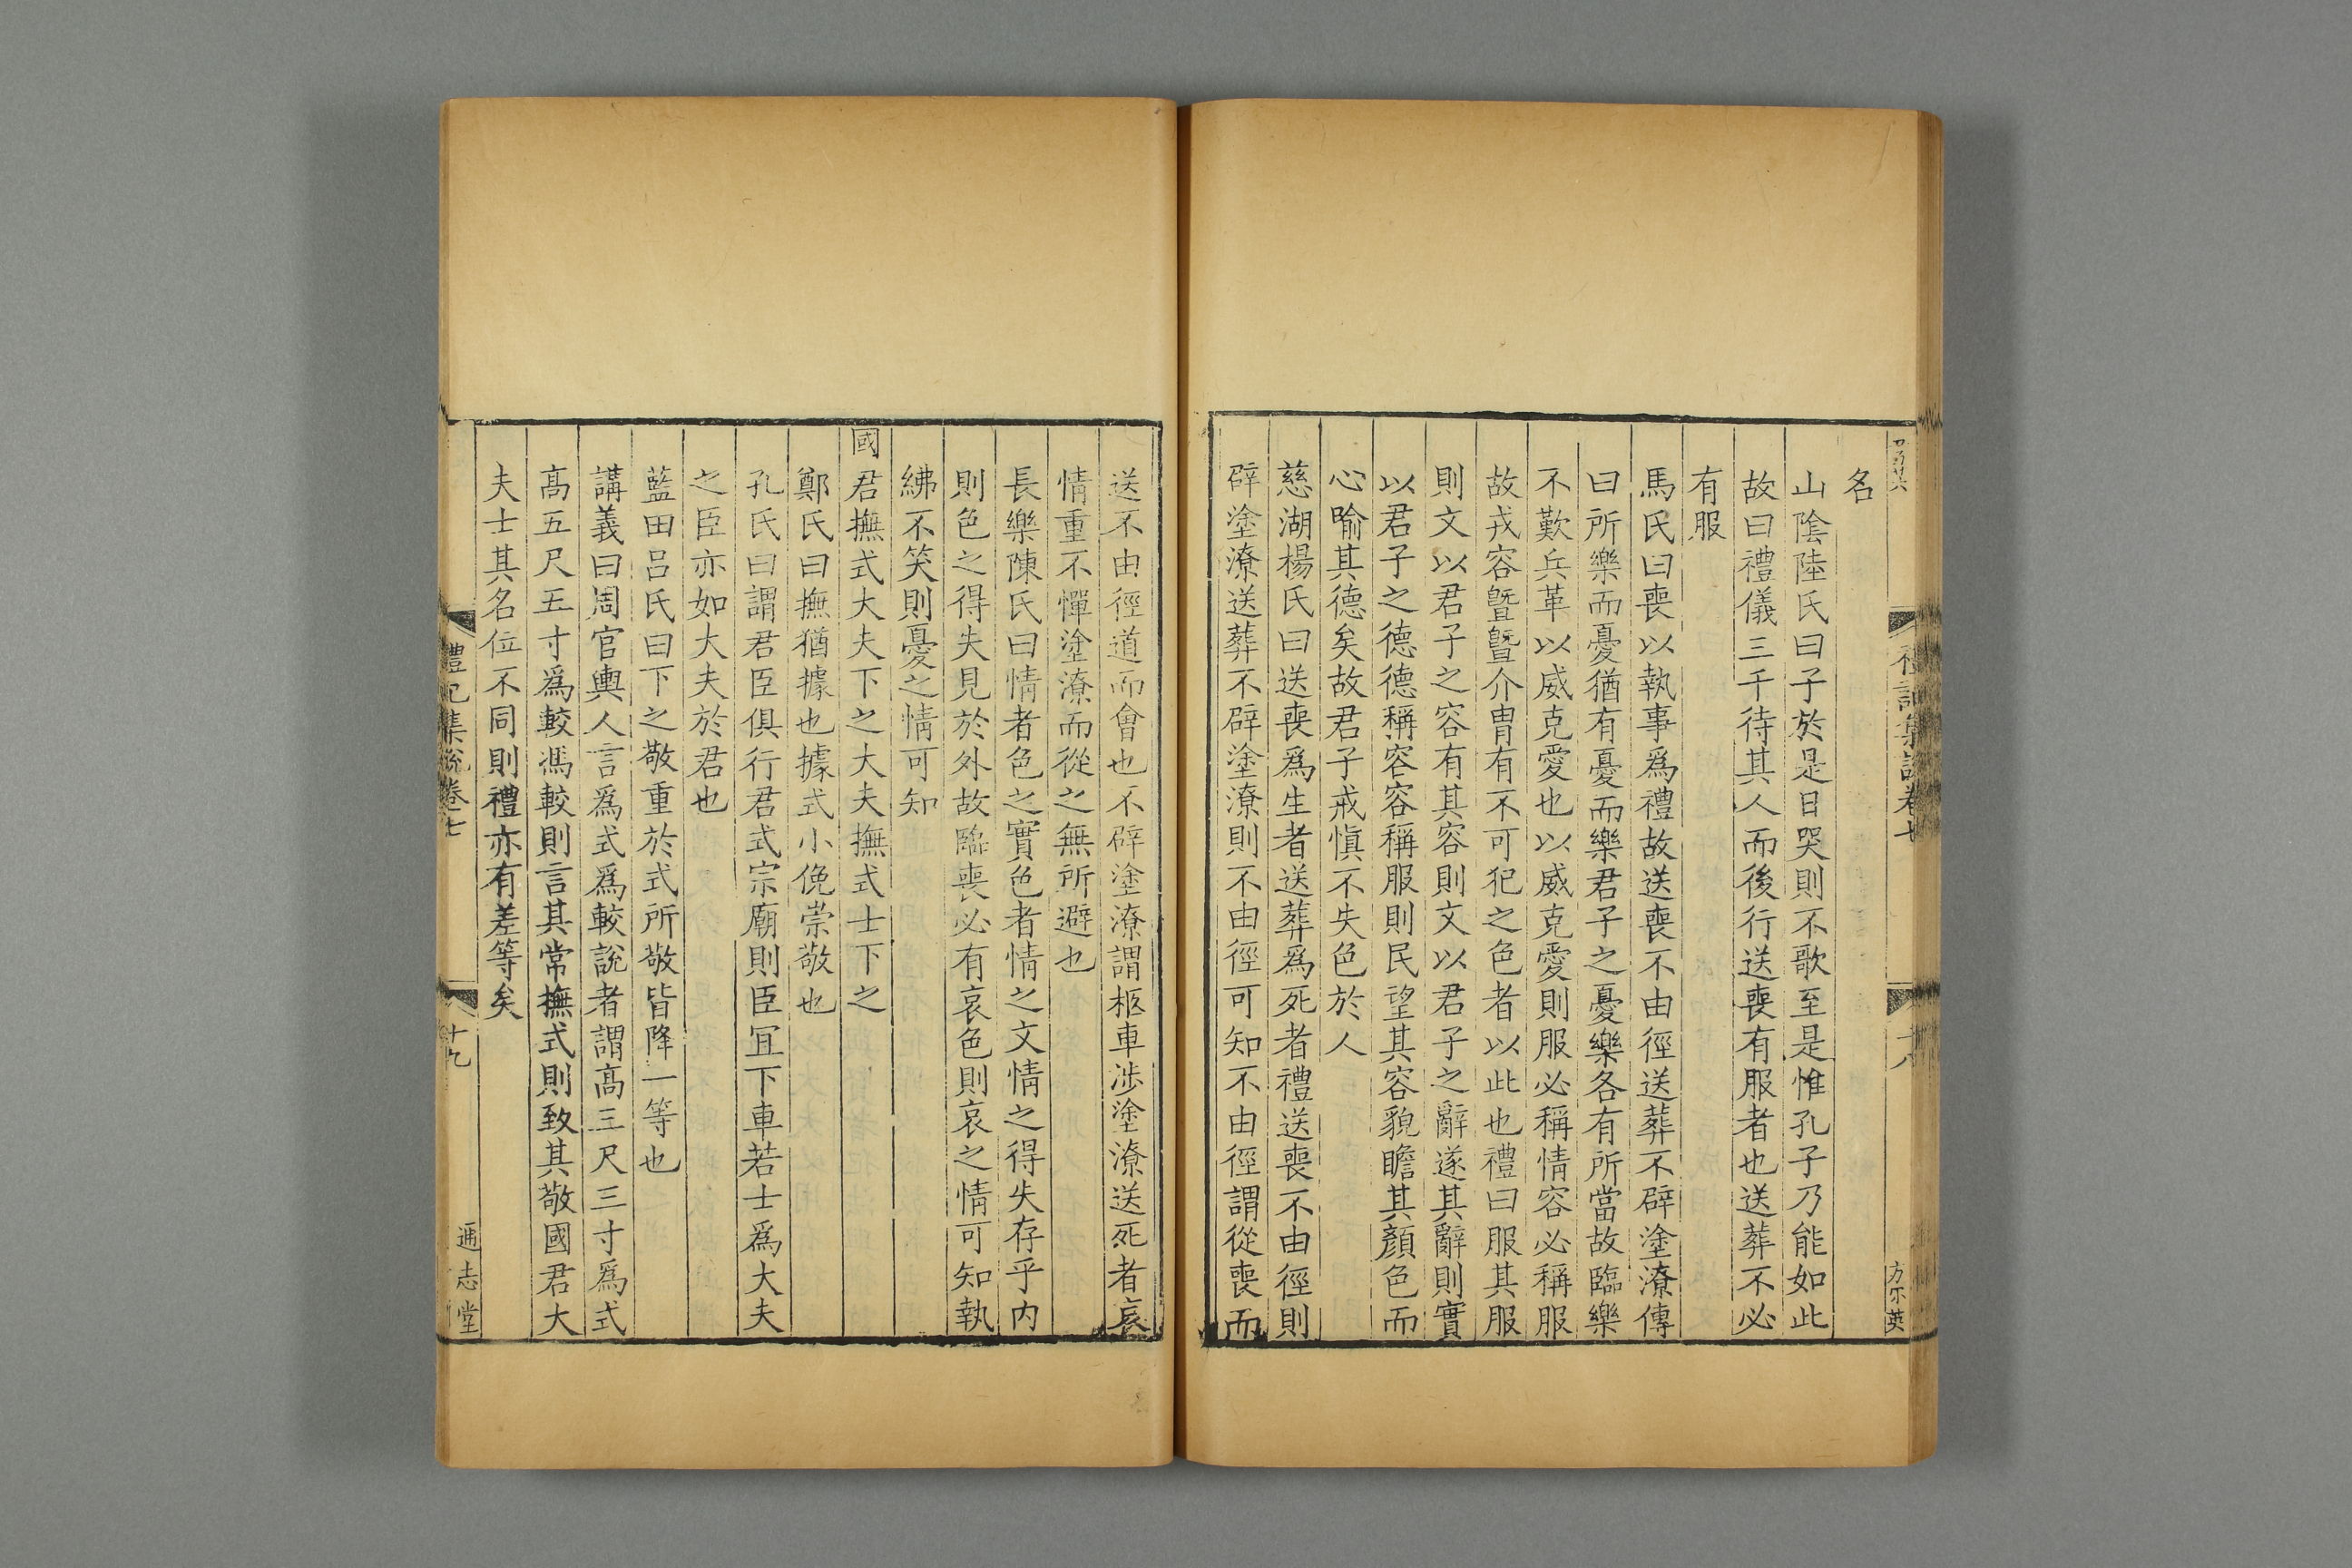 名
山陰陸氏曰子於是日哭則不歌至是惟孔子乃能如此
故曰禮儀三千待其人而後行送喪有服者也送葬不必
有服
馬氏曰喪以執事爲禮故送喪不由徑送葬不辟塗潦傳
曰所樂而憂猶有憂而樂君子之憂樂各有所當故臨樂
不歎兵革以威克愛也以威克愛則服必稱情容必稱服
故戎容曁曁介冑有不可犯之色者以此也禮曰服其服
則文以君子之容有其容則文以君子之辭遂其辭則實
以君子之德德稱容容稱服則民望其容貌瞻其顏色而
心喻其德矣故君子戒愼不失色於人
慈湖楊氏曰送喪爲生者送葬爲死者禮送喪不由徑則
辟塗潦送葬不辟塗潦則不由徑可知不由徑謂從喪而
禮記集說卷七
十八
送不由徑道而會也不辟塗潦謂柩車涉塗潦送死者哀
情重不憚塗潦而從之無所避也
長樂陳氏曰情者色之實色者情之文情之得失存乎內
則色之得失見於外故臨喪必有哀色則哀之情可知執
紼不笑則憂之情可知
國君撫式大夫下之大夫撫式士下之
鄭氏曰撫猶據也據式小俛崇敬也
孔氏曰謂君臣俱行君式宗廟則臣宜下車若士爲大夫
之臣亦如大夫於君也
藍田呂氏曰下之敬重於式所敬皆降一等也
講義曰周官輿人言爲式爲較說者謂高三尺三寸爲式
高五尺五寸爲較馮較則言其常撫式則致其敬國君大
夫士其名位不同則禮亦有差等矣
禮記集說卷七
十九
通志堂